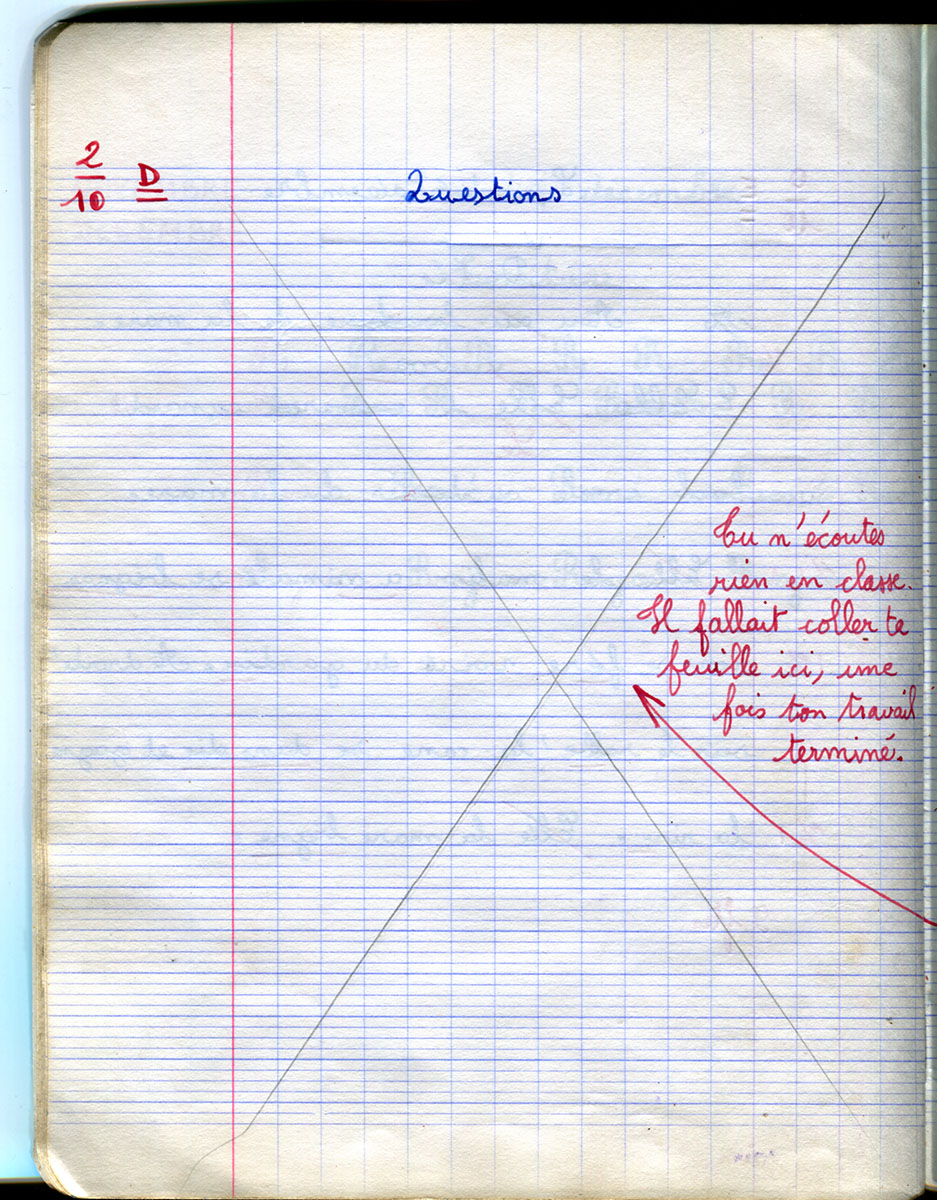 2
10
D
Questions
Tu n'écoutes
rien en classe.
Il fallait coller ta
feuille ici, une
fois ton travail
terminé.